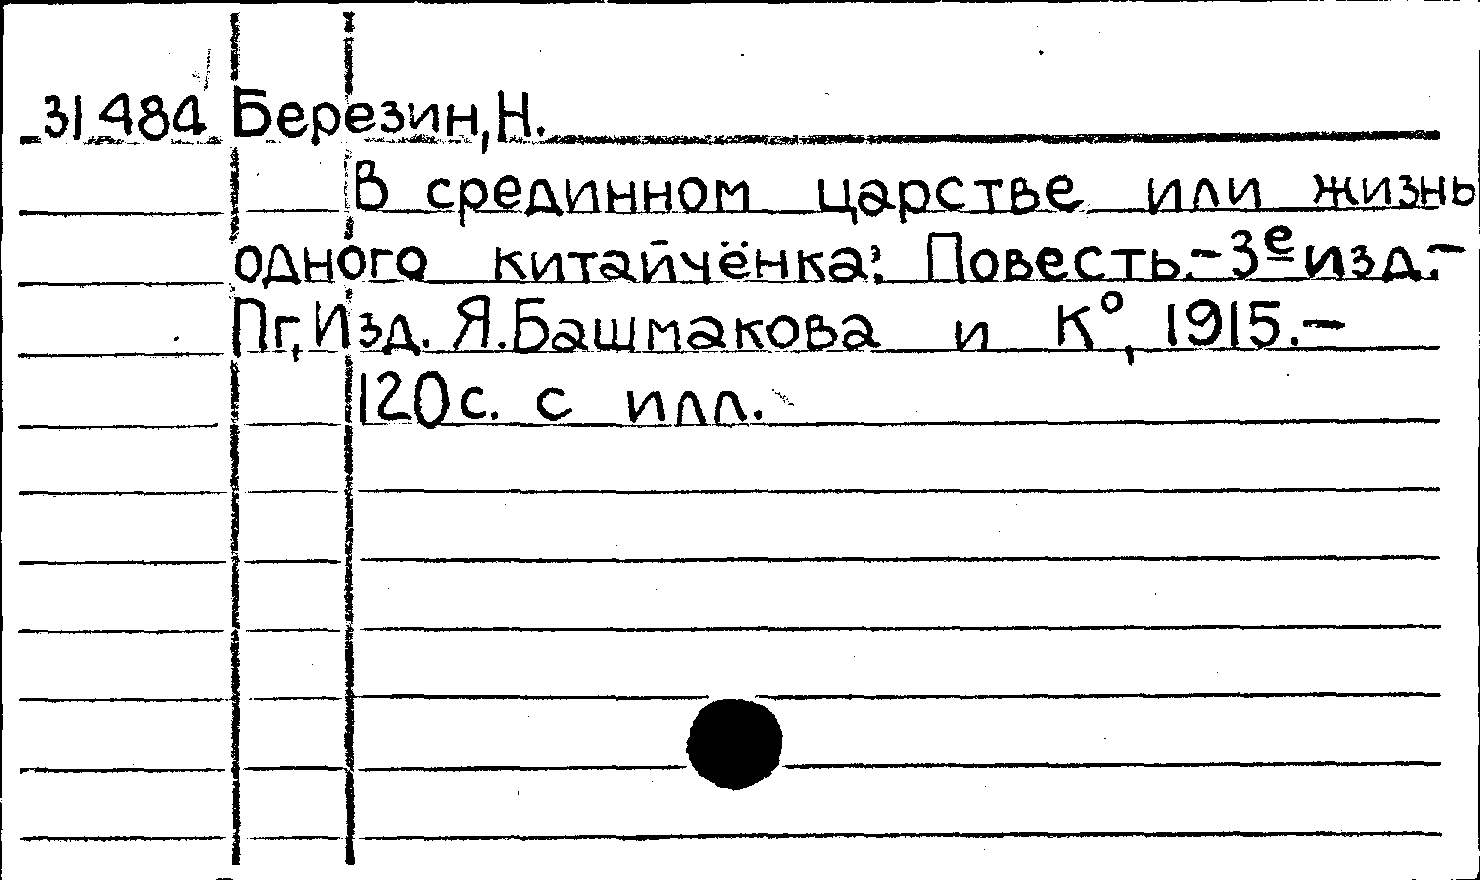 31484 Березин, Н.
В срединном царстве или жизнь
одного китайчёнка: Повесть.-3е изд.-
Пг, Изд. Я.Башмакова и К°, 1915.-
120с. с илл.